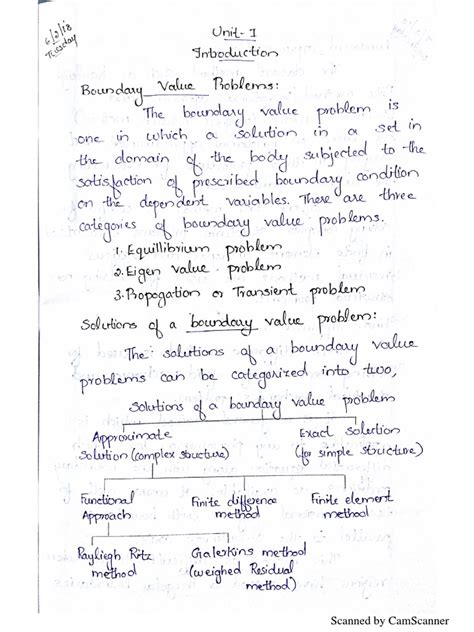 6/2/18
Tuesday
Unit-I
Introduction
Boundary Value Problems:
The boundary value problem is
one in which a solution in a set in
the domain of the body subjected to the
satisfaction of prescribed boundary condition
on the dependent variables. There are three
categories of boundary value problems.
1. Equillibrium problem
2. Eigen value problem
3. Propogation or Transient problem
Solutions of a boundary value problem:
The solutions of a boundary value
problems can be categorized into two,
Solutions of a boundary value problem
Approximate Exact solution
Solution (complex structure) (for simple structure)
Functional Finite difference Finite element
Approach method method
Rayliegh Ritz Galerkins method
method (weighed Residual
method)
Scanned by CamScanner